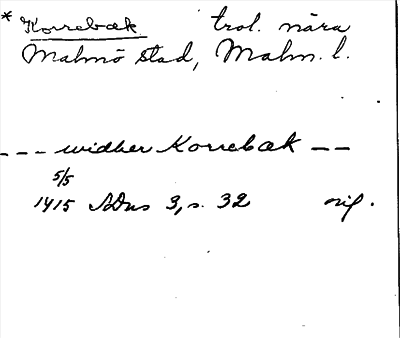 * Korrebæk trol. nära
Malmö stad, Malm. l.
--- widher Korrebæk --
5/5
1415 SDns 3, s. 32 orig.